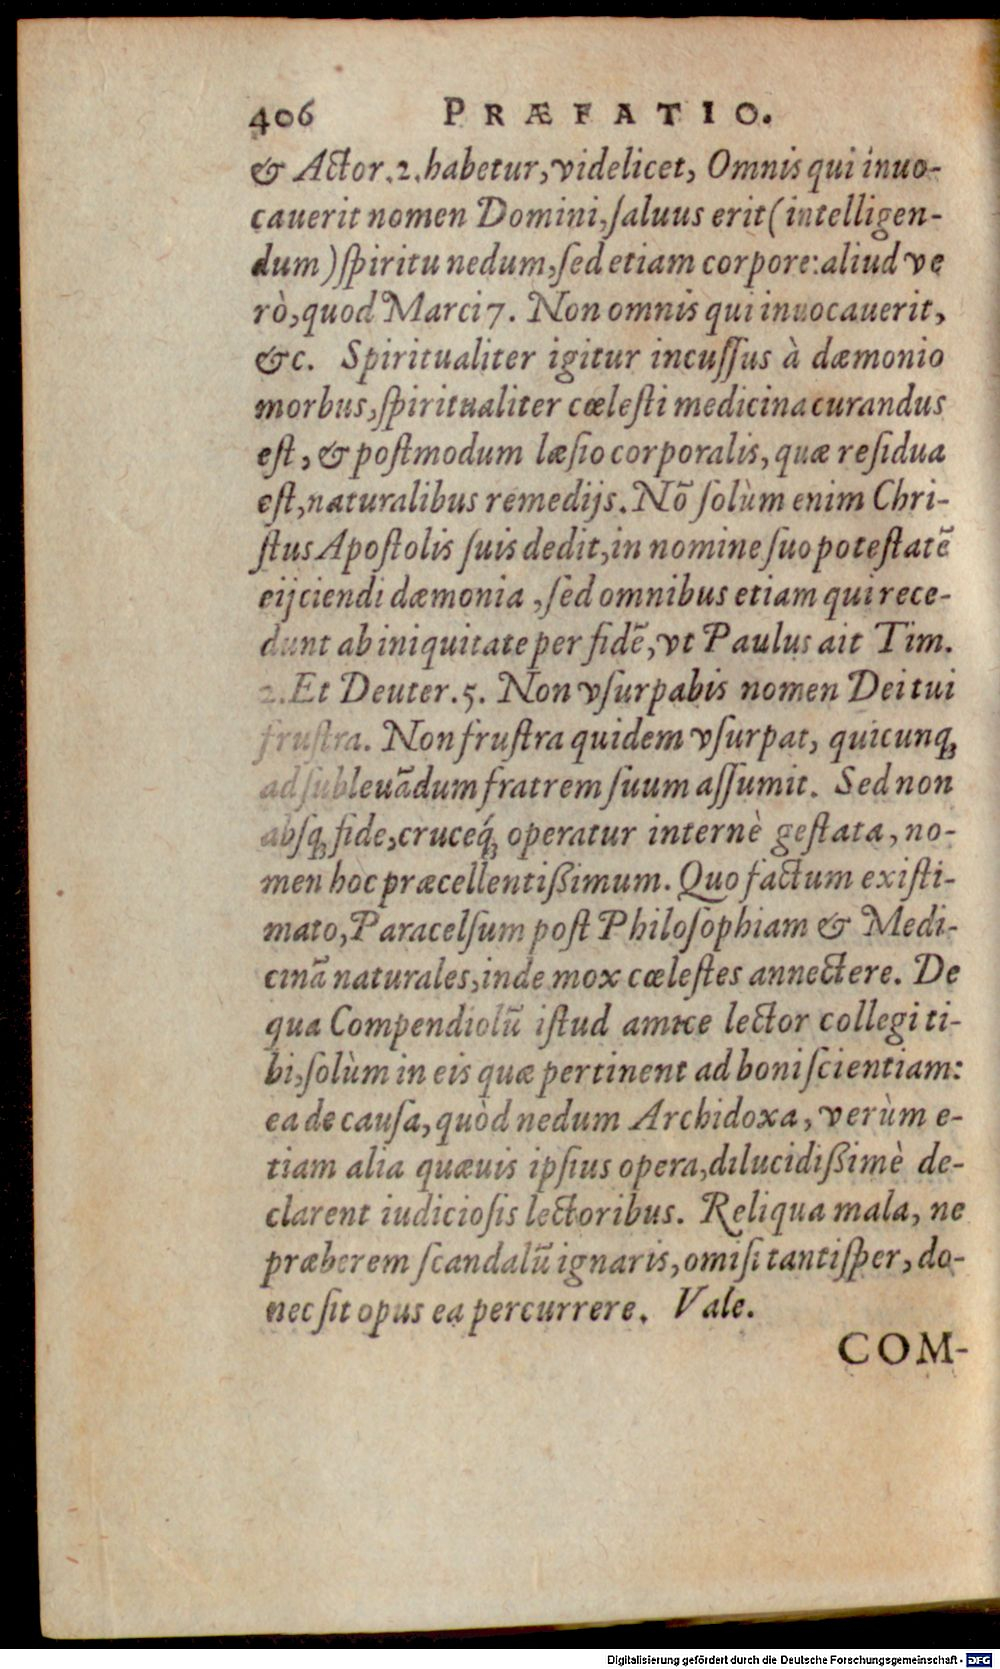 406 PRÆFATIO.
& Actor.2.habetur, videlicet, Omnis qui inuo-
cauerit nomen Domini, ſaluus erit (intelligen-
dum) ſpiritu nedum, ſed etiam corpore: aliud ve
rò, quod Marci 7. Non omnis qui inuocauerit,
&c. Spiritualiter igitur incuſſus à dæmonio
morbus, ſpiritualiter cœleſti medicina curandus
eſt, & poſtmodum læſio corporalis, quæ reſidua
eſt, naturalibus remedijs. Nõ ſolùm enim Chri-
ſtus Apoſtolis ſuis dedit, in nomine ſuo poteſtatẽ
eijciendi dæmonia, ſed omnibus etiam qui rece-
dunt ab iniquitate per fidẽ, vt Paulus ait Tim.
2. Et Deuter.5. Non vſurpabis nomen Dei tui
fruſtra. Non fruſtra quidem vſurpat, quicunq;
ad ſubleuãdum fratrem ſuum aſſumit. Sed non
abſq; fide, cruceq́; operatur internè geſtata, no-
men hoc præcellentißimum. Quo factum exiſti-
mato, Paracelſum poſt Philoſophiam & Medi-
cinã naturales, inde mox cœleſtes annectere. De
qua Compendiolũ iſtud amice lector collegi ti-
bi, ſolùm in eis quæ pertinent ad boni ſcientiam:
ea de cauſa, quòd nedum Archidoxa, verùm e-
tiam alia quæuis ipſius opera, dilucidißimè de-
clarent iudicioſis lectoribus. Reliqua mala, ne
præberem ſcandalũ ignaris, omiſi tantiſper, do-
nec ſit opus ea percurrere. Vale.
COM-
Digitalisierung gefördert durch die Deutsche Forschungsgemeinschaft - DFG